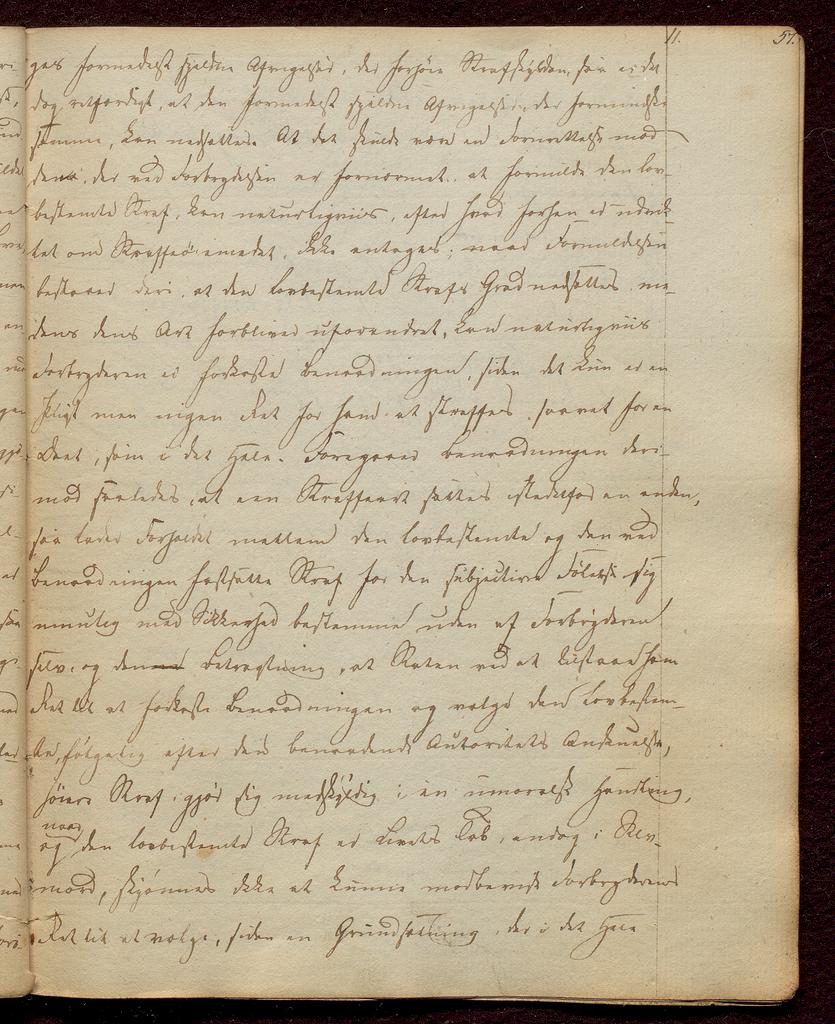 11. 57.
ges formedelst sieldne Afvigelser, der forhøie Strafskylden, saa er det
dog retfærdigt, at den formedelst sieldne Afvigelser, der formindske
samme, kan nedsættes. At det skulde være en Fornrettelse mod
den, der ved Forbrydelsen er fornærmet, at formilde den lov-
bestemte Straf, kan naturligviis, efter hvad forhen er udvik-
let om Straffeøiemedet, ikke antages; naar Formildelsen
bestaaer deri, at den lovbestemte Strafs Grad nedsættes, me-
dens dens Art forbliver uforandret, kan naturligviis
Forbryderen ei forkaste Benaadningen, siden det kun er en
Pligt men ingen Ret for ham at straffes, saavel for en
Deel, som i det Hele. Foregaaer Benaadningen deri-
mod saaledes, at een Straffeart sættes istedetfor en anden,
saa lader Forholdet mellem den lovbestemte og den ved
Benaadningen fastsatte Straf for den subjective Følelse sig
umulig med Sikkerhed bestemme uden af Forbryderen
selv, og den Betragtning, at Staten ved at tilstaae ham
Ret til at forkaste Benaadningen og vælge den lovbestem-
te, følgelig efter den benaadende Autoritets Anskuelse,
høiere Straf, gjør sig medskyldig i en umoralsk Handling,
naar
og den lovbestemte Straf er Livets Tab, endog i Selv-
mord, skjønnes ikke at kunne modbevise Forbryderens
Ret til at vælge, siden en Grundsætning, der i det Hele